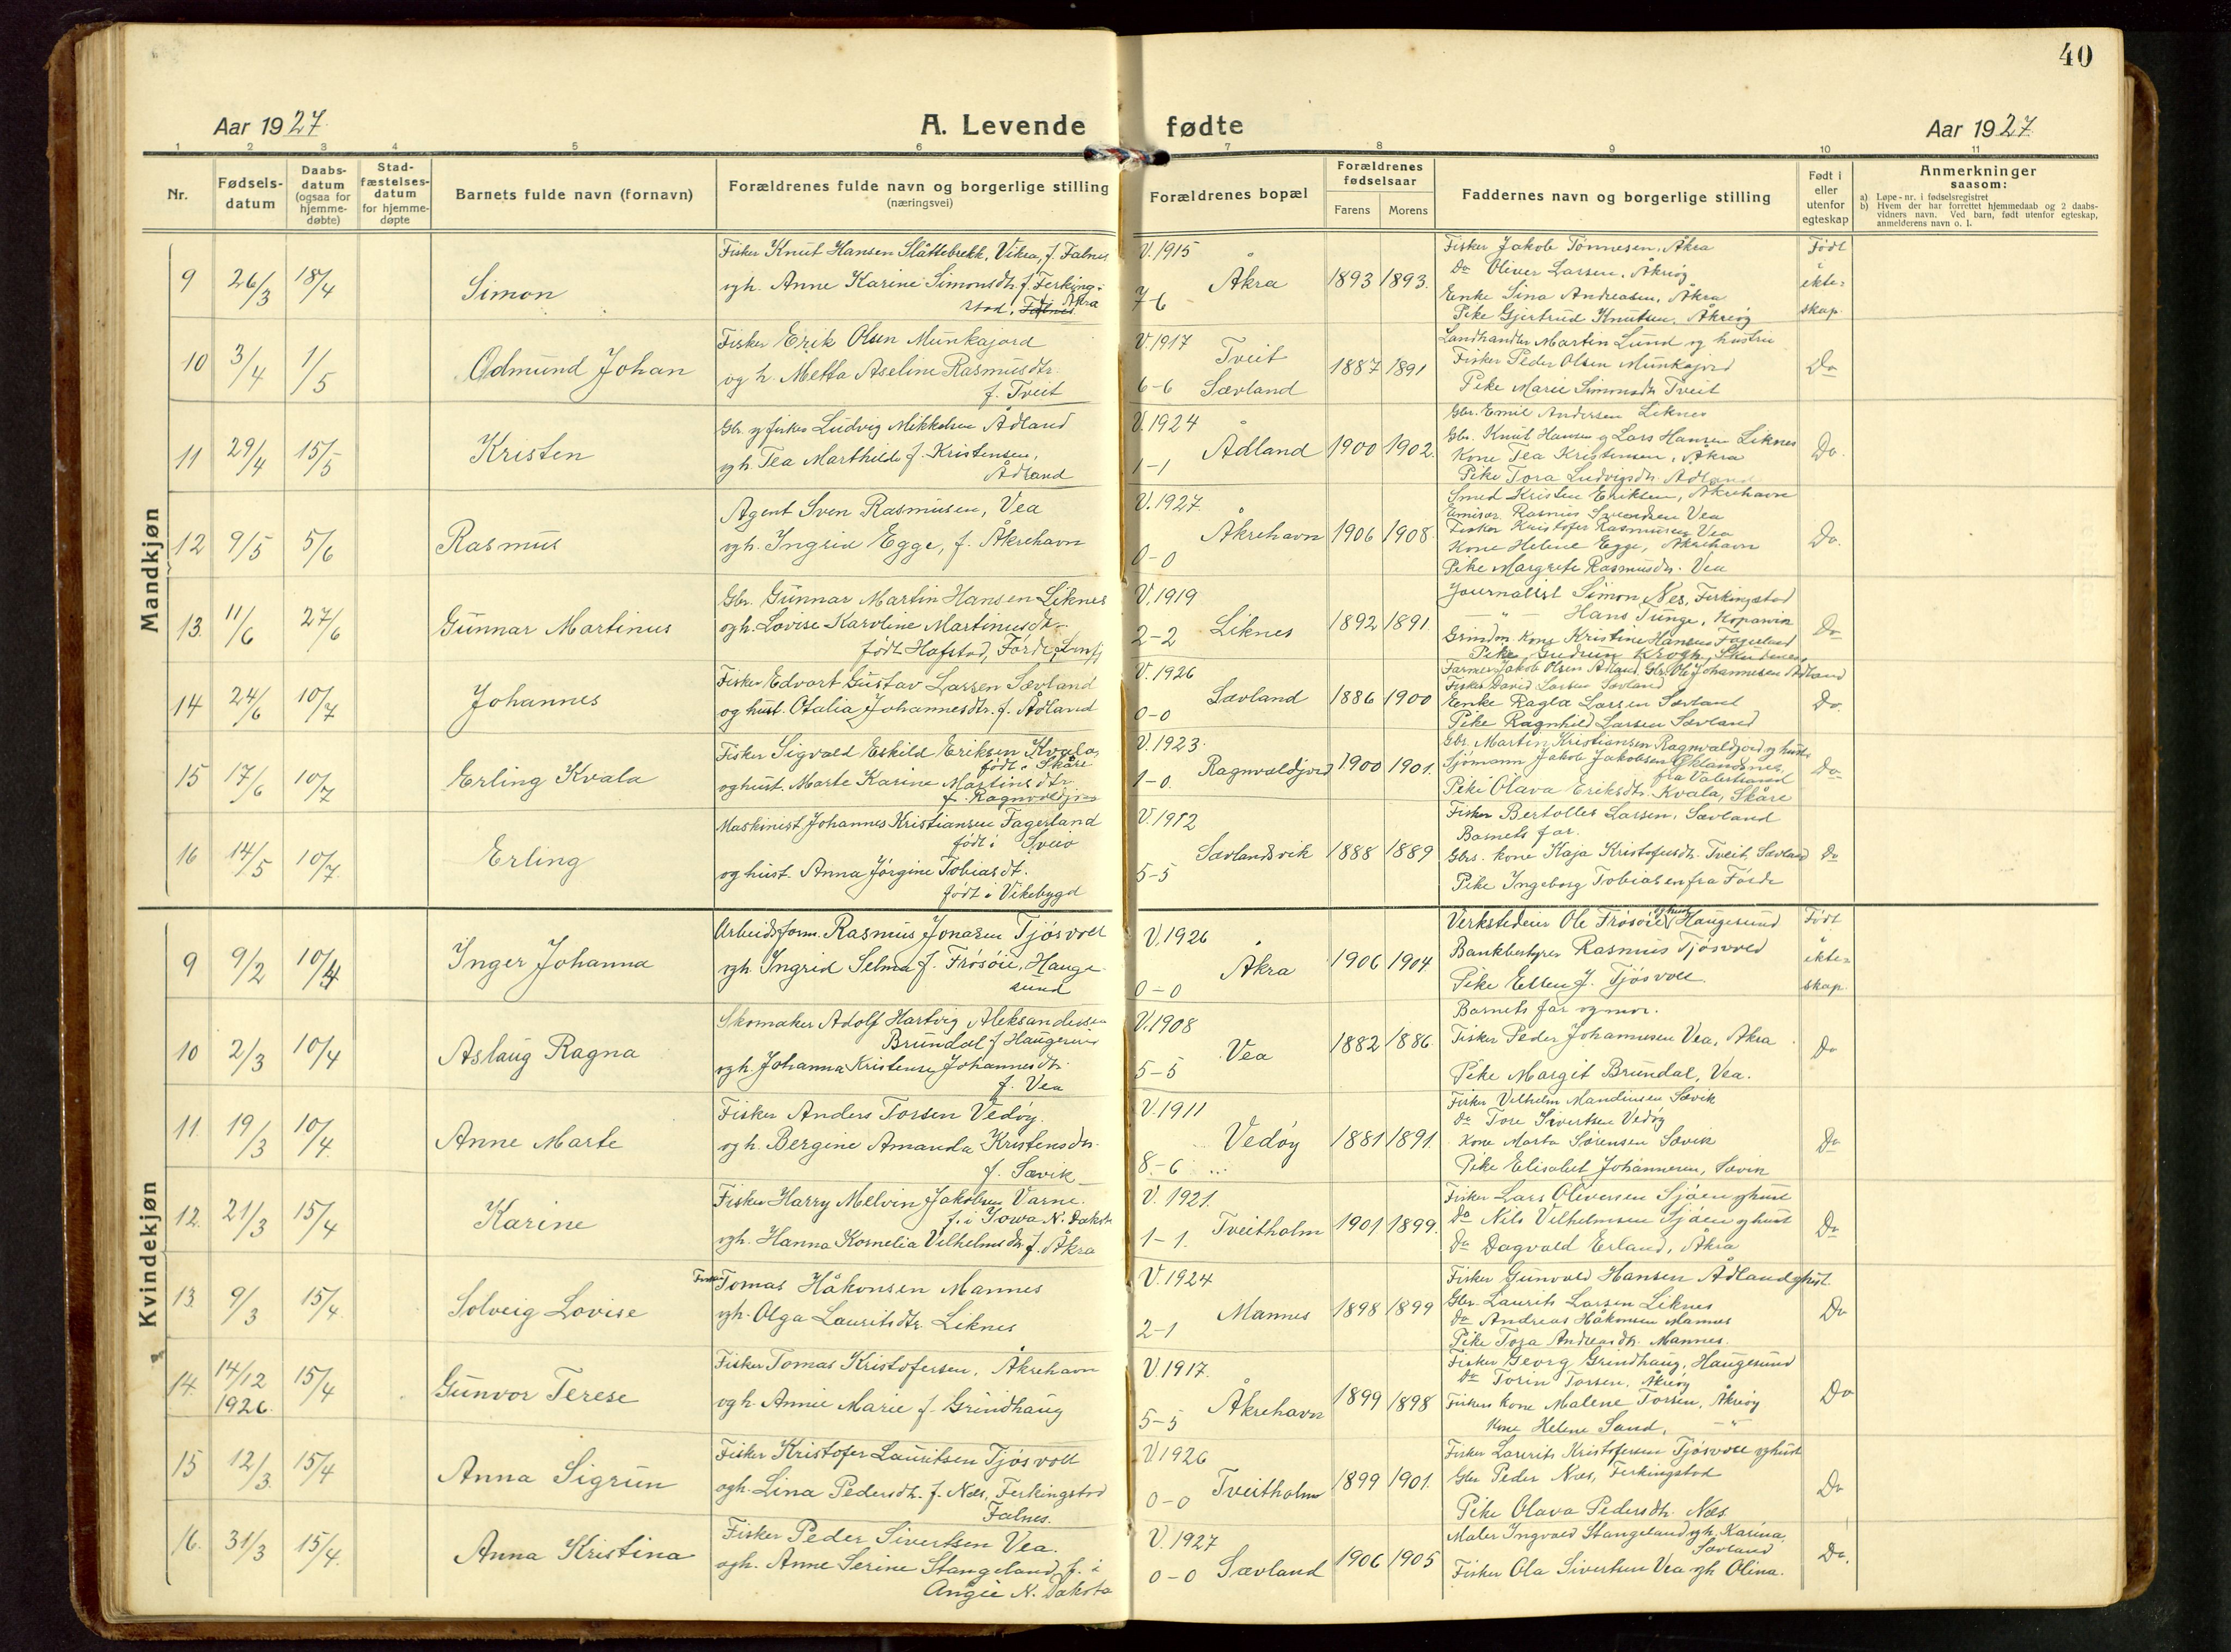 40
Aar 1927.
A. Levende fødte
Aar 1927.
1 2 3 4 5 6 7 8 9 10 11
Nr.
Fødsels-
datum
Daabs-
datum
(ogsaa for
hjemme-
døbte)
Stad-
fæstelses-
datum
for hjemme-
døpte
Barnets fulde navn (fornavn)
Forældrenes fulde navn og borgerlige stilling
(næringsvei)
Forældrenes bopæl
Forældrenes
fødselsaar
Farens Morens
Faddernes navn og borgerlige stilling
Født i
eller
utenfor
egteskap
Anmerkninger
saasom:
a) Løpe-nr. i fødselsregistret
b) Hvem der har forrettet hjemmedaab og 2 daabs-
vidners navn. Ved barn, født utenfor egteskap,
anmelderens navn o. l.
Mandkjøn
9 26/3 18/4 Simon
Fisker Knut Hansen Slåttebrekk, Vikra, f. Falnes
ogh. Anne Karine Simonsdtr. f. Ferking-
stad, Falnes Åkra
V. 1915
7-6 Åkra 1893 1893.
Fisker Jakob Tönnesen, Åkra
Do Oliver Larsen, Åkreög
Enke Sina Andreasen, Åkra
Pike Gjertrud Knutsen, Åkreög
Födt
i
ekte-
skap.
10 3/4 1/5 Odmund Johan
Fisker Erik Olsen Munkajord
og h. Metta Aseline Rasmusdtr.
f. Tveit
V. 1917
Tveit
6-6 Sævland 1887 1891
Landhandler Martin Lund og hustru
Fisker Peder Olsen Munkajord
Pike Marie Simonsdtr Tveit
Do
11 29/4 15/5 Kristen
Gbr. og fisker Ludvig Mikkelsen Ådland
ogh. Tea Marthilde f. Kristensen,
Ådland
V. 1924
1-1 Ådland 1900 1902.
Gbr. Emil Andersen Liknes
Gbr. Knut Hansen og Lars Hansen Liknes
Kone Tea Kristensen, Åkra
Pike Tora Ludvigsdtr. Ådland
Do.
12 9/5 5/6 Rasmus
Agent Sven Rasmusen, Vea
ogh. Ingrid Egge, f. Åkrehavn
V. 1927.
0-0 Åkrehavn 1906 1908.
Smed Kristen Eriksen, Åkrehavn
Emisær. Rasmus Svendsen Vea
Fisker Kristofer Rasmusen Vea
Kone Helene Egge, Åkrehavn
Pike Margrete Rasmusdtr. Vea
Do.
13. 11/6 27/6 Gunnar Martinus
Gbr. Gunnar Martin Hansen Liknes
ogh. Lovise Karoline Martinusdtr.
född Hafstad, Förde, Sunfj
V. 1919
2-2 Liknes 1892 1891.
Journalist Simon Nes, Ferkingstad
— " — Hans Tunge, Kopervik
Kone Kristine Hansen Fagerland
Pike Gudrun Krogh, Skudenes
Do
14 24/6 10/7 Johannes
Fisker Edvart Gustav Larsen Sævland
og hust. Otalia Johannesdtr. f. Ådland
V. 1926
0-0 Sævland 1886 1900
Farmer Jakob Olsen Ådland, Gbr. Ole Johannesen Ådland
Fisker David Larsen Sævland
Enke Ragla Larsen Sævland
Pike Ragnhild Larsen Sævland
Do.
15 17/6 10/7 Erling Kvala
Fisker Sigvald Eskild Eriksen Kvala,
född i Skåre
og hust. Marte Karine Martinsdtr.
f. Ragnvaldjord
V. 1923.
1-0. Ragnvaldjord 1900 1901.
Gbr. Martin Kristiansen Ragnvaldjord og hustr.
Sjömann Jakob Jakobsen Öklandsnes,
fra Valestrand
Pike Olava Eriksdtr. Kvala, Skåre
Do
16 14/5 10/7. Erling
Maskinist Johannes Kristiansen Fagerland
född i Sveio
og hust. Anna Jörgine Tobiasdt.
född i Vikebygd
V. 1912
5-5 Sævlandsvik 1888 1889
Fisker Bertolles Larsen, Sævland
Barnets far.
Gbrs. kone Kaja Kristofersdtr. Tveit, Sævland
Pike Ingeborg Tobiasen fra Förde
Do
Kvindekjøn
9 9/2 10/4 Inger Johanna
Arbeidsform. Rasmus Jonasen Tjösvoll
ogh. Ingrid Selma f. Frösöie, Hauge-
sund
V. 1926
0-0 Åkra 1906 1904
Verkstedeier Ole Frösöie og hust. Haugesund
Bankbestyrer Rasmus Tjösvold
Pike Ellen J. Tjösvoll.
Födt
i
ekte-
skap.
10 2/3 10/4 Aslaug Ragna
Skomaker Adolf Hartvig Aleksandersen
Brundal f Haugesund
ogh. Johanna Kristense Johannesdtr.
f. Vea
V. 1908
5-5 Vea 1882 1886.
Barnets far og mor.
Fisker Peder Johannesen Vea, Åkra
Pike Margit Brundal, Vea.
Do
11. 19/3 10/4. Anne Marte
Fisker Anders Torsen Vedöy.
og h. Bergine Amanda Kristensdtr.
f. Sævik
V. 1911
8.-6 Vedöy 1881 1891.
Fisker Vilhelm Mandiusen Sævik
do Tore Sivertsen Vedöy
Kone Marta Sörensen Sævik
Pike Elisabet Johannesen, Sævik
Do
12. 21/3 15/4 Karine
Fisker Harry Melvin Jakobsen Varne.
f. i Iowa N. Dakota
ogh. Hanna Kornelia Vilhelmsdtr. f. Åkra
V. 1921.
1-1. Tveitholm 1901 1899.
Fisker Lars Oliversen Sjöen og hust
Do Nils Vilhelmsen Sjöen og hust
Do Dagvald Erland, Åkra
Do
13. 9/3 15/4. Solveig Lovise
Fisker Tomas Håkonsen Mannes
ogh. Olga Lauritsdtr. Liknes
V. 1924
2-1 Mannes 1898 1899
Fisker Gunvald Hansen Ådland og hust.
Gbr. Laurits Larsen Liknes
Do Andreas Håkonsen Mannes
Pike Tora Andreasdtr. Mannes.
Do
14. 14/12 1926. 15/4 Gunvor Terese
Fisker Tomas Kristofersen, Åkrehavn
ogh. Annie Marie f. Grindhaug
V 1917.
5-5 Åkrehavn 1899 1898
Fisker Georg Grindhaug, Haugesund
Do Torin Torsen, Åkreög
Fiskers kone Malene Torsen, Åkreög
Kone Helene Sand, — " —
Do
15 12/3. 15/4 Anna Sigrun
Fisker Kristofer Lauritsen Tjösvoll
ogh. Lina Pedersdtr. f. Næs, Ferkingstad
Falnes.
V 1926
0-0 Tveitholm 1899 1901.
Fisker Laurits Kristofersen Tjösvoll og hust
Gbr Peder Næs, Ferkingstad
Pike Olava Pedersdtr. Næs.
Do
16. 31/3 15/4. Anna Kristina
Fisker Peder Sivertsen Vea.
ogh. Anne Serine Stangeland, f. i
Angie N. Dakota
V. 1927
0-0 Sævland 1906 1905
Maler Ingvald Stangeland ogh. Karina,
Sævland
Fisker Ola Sivertsen Vea ogh Olina.
Do.